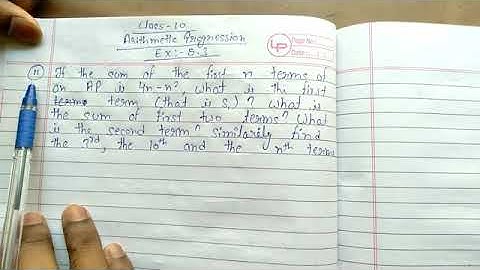 Class-10
Arithmetic Progression
Ex:- 5.3
LP
Page No.
(11) If the sum of the first n terms of
an AP is 4n-n², what is the first
term (that is S₁)? What is
the sum of first two terms? What
is the second term? Similarly find
the 3rd, the 10th and the nth terms